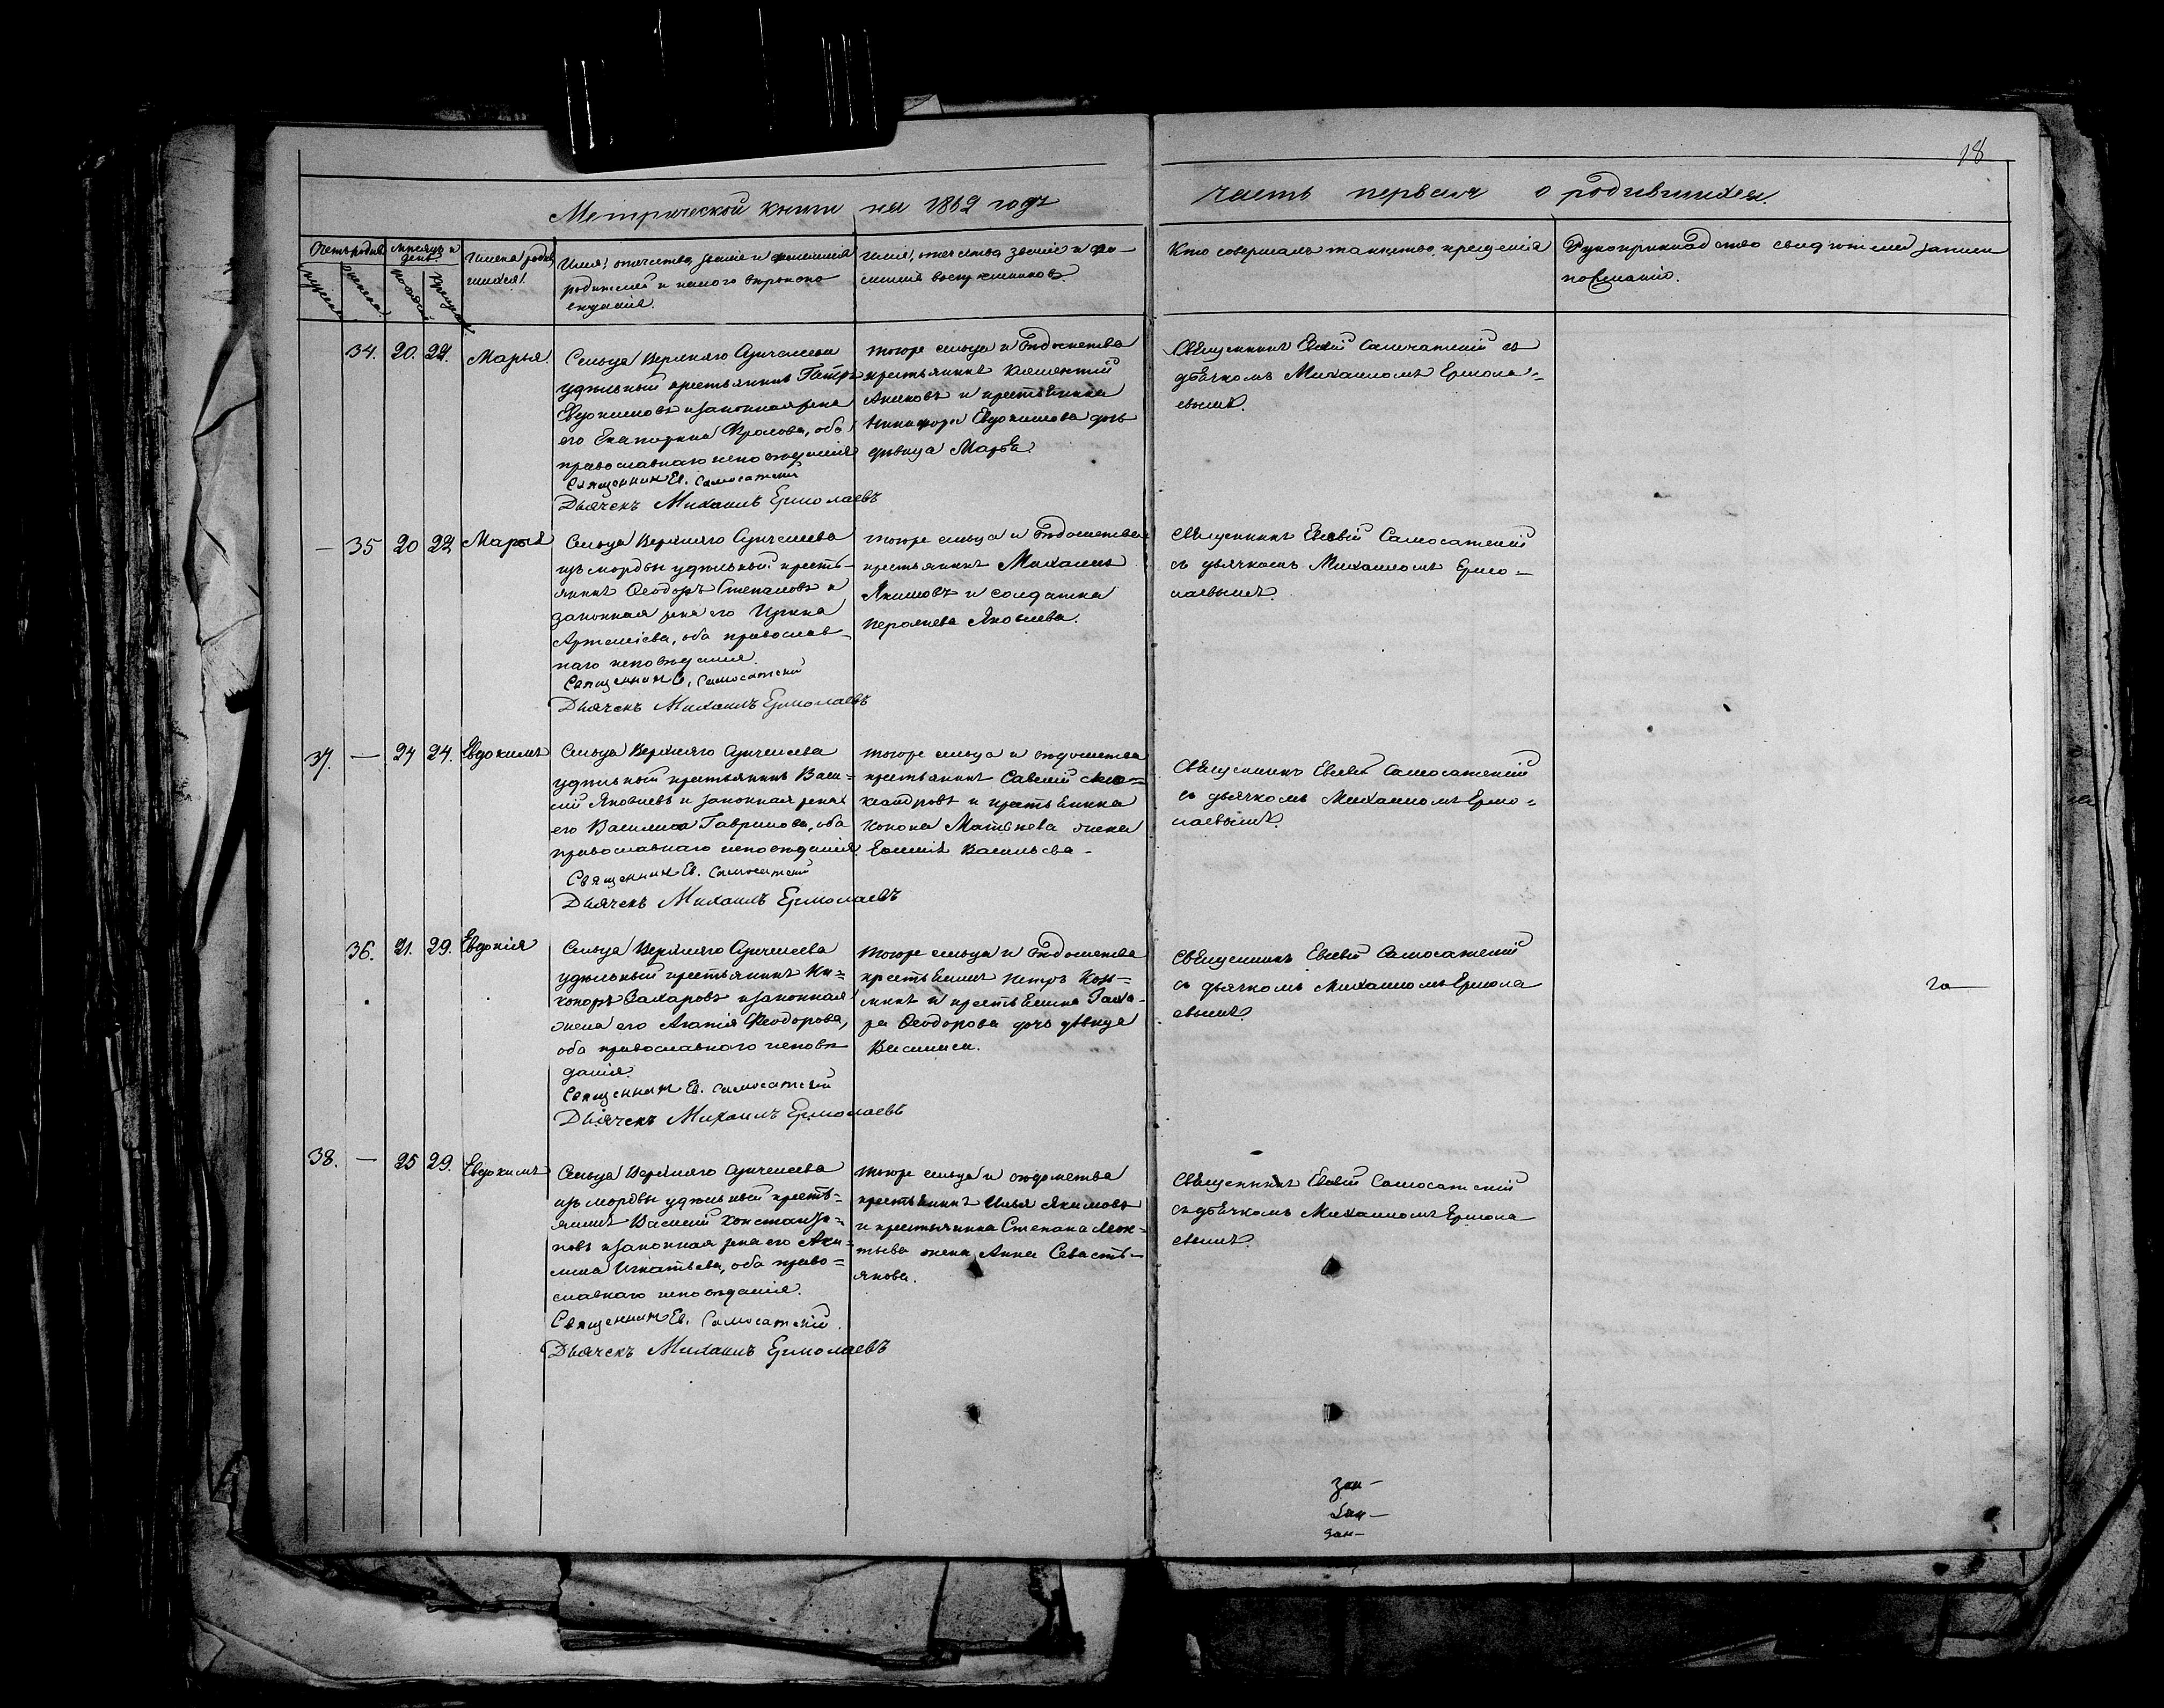 18
Метрической книги на 1862 годъ
часть первая о родившихся.
Счетъ родив.
мужеска
женска
мѣсяцъ и день
рожденія
крещенія
Имена родив
шихся.
Имя, отчество, званіе и фамилія
родителей и какого вѣроиспо
вѣданія.
Имя, отчество, званіе и фа-
милія воспріемниковъ
Кто совершалъ таинство крещенія
Рукоприкладство свидѣтелей записи
по желанію.
34. 20. 22. Марья
Сельца Верхняго
удѣльный крестьянинъ Петръ
Евдокимовъ и законная жена
его Екатерина Фролова, оба
православнаго исповѣданія
Священникъ Ев. Самосатскій
Дьячекъ Михаилъ Ермолаевъ
тогоже сельца и вѣдомства
крестьянинъ Климентій
и крестьянина
Никифора Евдокимова дочь
дѣвица Марѳа
Священникъ Евсевій Самосатскій съ
дьячкомъ Михаиломъ Ермола-
евымъ.
— 35 20 22 Марья
Сельца Верхняго
изъ мордвы удѣльный кресть-
янинъ Ѳеодоръ Степановъ и
законная жена его Ирина
Артемьева, оба православ-
наго исповѣданія.
Священникъ Е. Самосатскій
Дьячекъ Михаилъ Ермолаевъ
тогоже сельца и вѣдомства
крестьянинъ Михаилъ
Якимовъ и солдатка
Яковлева.
Священникъ Евсевій Самосатскій
съ дьячкомъ Михаиломъ Ермо-
лаевымъ.
37. — 24 24. Евдокимъ
Сельца Верхняго
удѣльный крестьянинъ Васи-
лій Яковлевъ и законная жена
его Василиса Гаврилова, оба
православнаго исповѣданія.
Священникъ Ев. Самосатскій
Дьячекъ Михаилъ Ермолаевъ
тогоже сельца и вѣдомства
крестьянинъ Савелій Але-
ксандровъ и крестьянина
Конона Матвѣева жена
Васильева.
Священникъ Евсевій Самосатскій
съ дьячкомъ Михаиломъ Ермо-
лаевымъ.
36. 21. 29. Евдокія
Сельца Верхняго
удѣльный крестьянинъ Ни-
каноръ Захаровъ и законная
жена его Агапія Ѳеодорова,
оба православнаго исповѣ
данія.
Священникъ Ев. Самосатскій
Дьячекъ Михаилъ Ермолаевъ
тогоже сельца и вѣдомства
крестьянинъ Петръ Козь-
минъ и крестьянина Заха-
ра Ѳеодорова дочь дѣвица
Василиса.
Священникъ Евсевій Самосатскій
съ дьячкомъ Михаиломъ Ермола
евымъ.
38. — 25 29. Евдокимъ
Сельца Верхняго
изъ мордвы удѣльный кресть-
янинъ Василій Константи-
новъ и законная жена его Аку-
лина Игнатьева, оба право-
славнаго исповѣданія.
Священникъ Ев. Самосатскій.
Дьячекъ Михаилъ Ермолаевъ
тогоже сельца и вѣдомства
крестьянинъ Илья Якимовъ
и крестьянина Степана Леон-
тьева жена Анна Севасть-
янова.
Священникъ Евсевій Самосатскій
съ дьячкомъ Михаиломъ Ермола
евымъ.